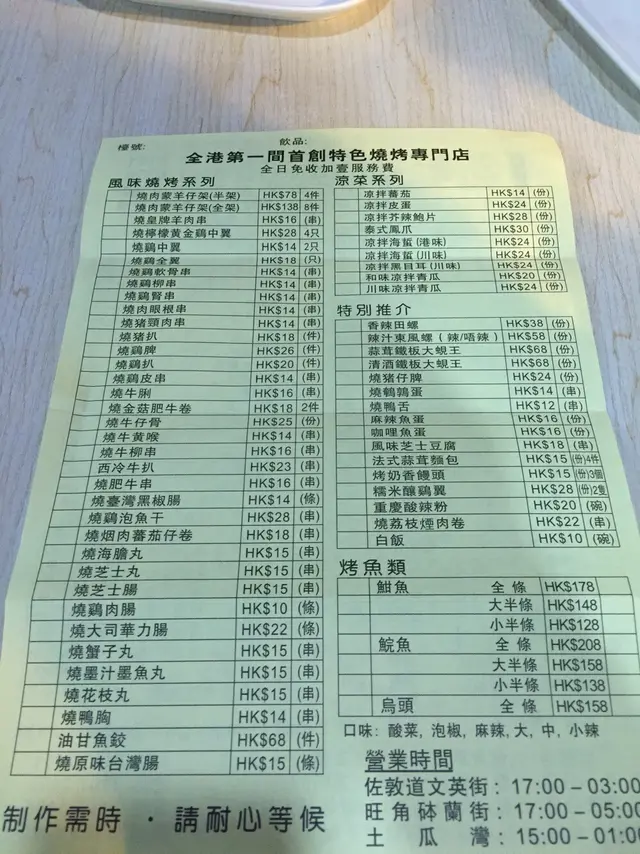 檯號:
飲品:
全港第一間首創特色燒烤專門店
全日免收加壹服務費
風味燒烤系列
燒肉蒙羊仔架(半架) HK$78 4件
燒肉蒙羊仔架(全架) HK$138 8件
燒皇牌羊肉串 HK$16 (串)
燒檸檬黃金鷄中翼 HK$28 4只
燒鷄中翼 HK$14 2只
燒鷄全翼 HK$18 (只)
燒鷄軟骨串 HK$14 (串)
燒鷄柳串 HK$14 (串)
燒鷄腎串 HK$14 (串)
燒肉眼根串 HK$14 (串)
燒豬頸肉串 HK$14 (串)
燒豬扒 HK$18 (件)
燒鷄脾 HK$26 (件)
燒鷄扒 HK$20 (件)
燒鷄皮串 HK$14 (串)
燒牛脷 HK$16 (串)
燒金菇肥牛卷 HK$18 2件
燒牛仔骨 HK$25 (份)
燒牛黄喉 HK$14 (串)
燒牛柳串 HK$16 (串)
西冷牛扒 HK$23 (串)
燒肥牛串 HK$16 (串)
燒臺灣黑椒腸 HK$14 (條)
燒鷄泡魚干 HK$28 (串)
燒烟肉蕃茄仔卷 HK$18 (串)
燒海膽丸 HK$15 (串)
燒芝士丸 HK$15 (串)
燒芝士腸 HK$15 (串)
燒鷄肉腸 HK$10 (條)
燒大司華力腸 HK$22 (條)
燒蟹子丸 HK$15 (串)
燒墨汁墨魚丸 HK$15 (串)
燒花枝丸 HK$15 (串)
燒鴨胸 HK$14 (串)
油甘魚鮫 HK$68 (件)
燒原味台灣腸 HK$15 (條)
涼菜系列
凉拌蕃茄 HK$14 (份)
凉拌皮蛋 HK$24 (份)
凉拌芥辣鮑片 HK$28 (份)
泰式鳳爪 HK$30 (份)
凉拌海蜇(港味) HK$24 (份)
凉拌海蜇(川味) HK$24 (份)
凉拌黑目耳(川味) HK$24 (份)
和味凉拌青瓜 HK$20 (份)
川味凉拌青瓜 HK$24 (份)
特別推介
香辣田螺 HK$38 (份)
辣汁東風螺(辣/唔辣) HK$58 (份)
蒜茸鐵板大蜆王 HK$68 (份)
清酒鐵板大蜆王 HK$68 (份)
燒豬仔脾 HK$24 (份)
燒鵪鶉蛋 HK$14 (串)
燒鴨舌 HK$12 (串)
麻辣魚蛋 HK$16 (份)
咖哩魚蛋 HK$16 (份)
風味芝士豆腐 HK$18 (串)
法式蒜茸麵包 HK$15 (份)4件
烤奶香饅頭 HK$15 (份)3個
糯米釀鷄翼 HK$28 (份)2隻
重慶酸辣粉 HK$20 (碗)
燒荔枝煙肉卷 HK$22 (串)
白飯 HK$10 (碗)
烤魚類
鉗魚 全條 HK$178
大半條 HK$148
小半條 HK$128
鯇魚 全條 HK$208
大半條 HK$158
小半條 HK$138
烏頭 全條 HK$158
口味: 酸菜, 泡椒, 麻辣, 大, 中, 小辣
營業時間
佐敦道文英街: 17:00-03:00
旺角砵蘭街: 17:00-05:00
土瓜灣: 15:00-01:00
制作需時 · 請耐心等候